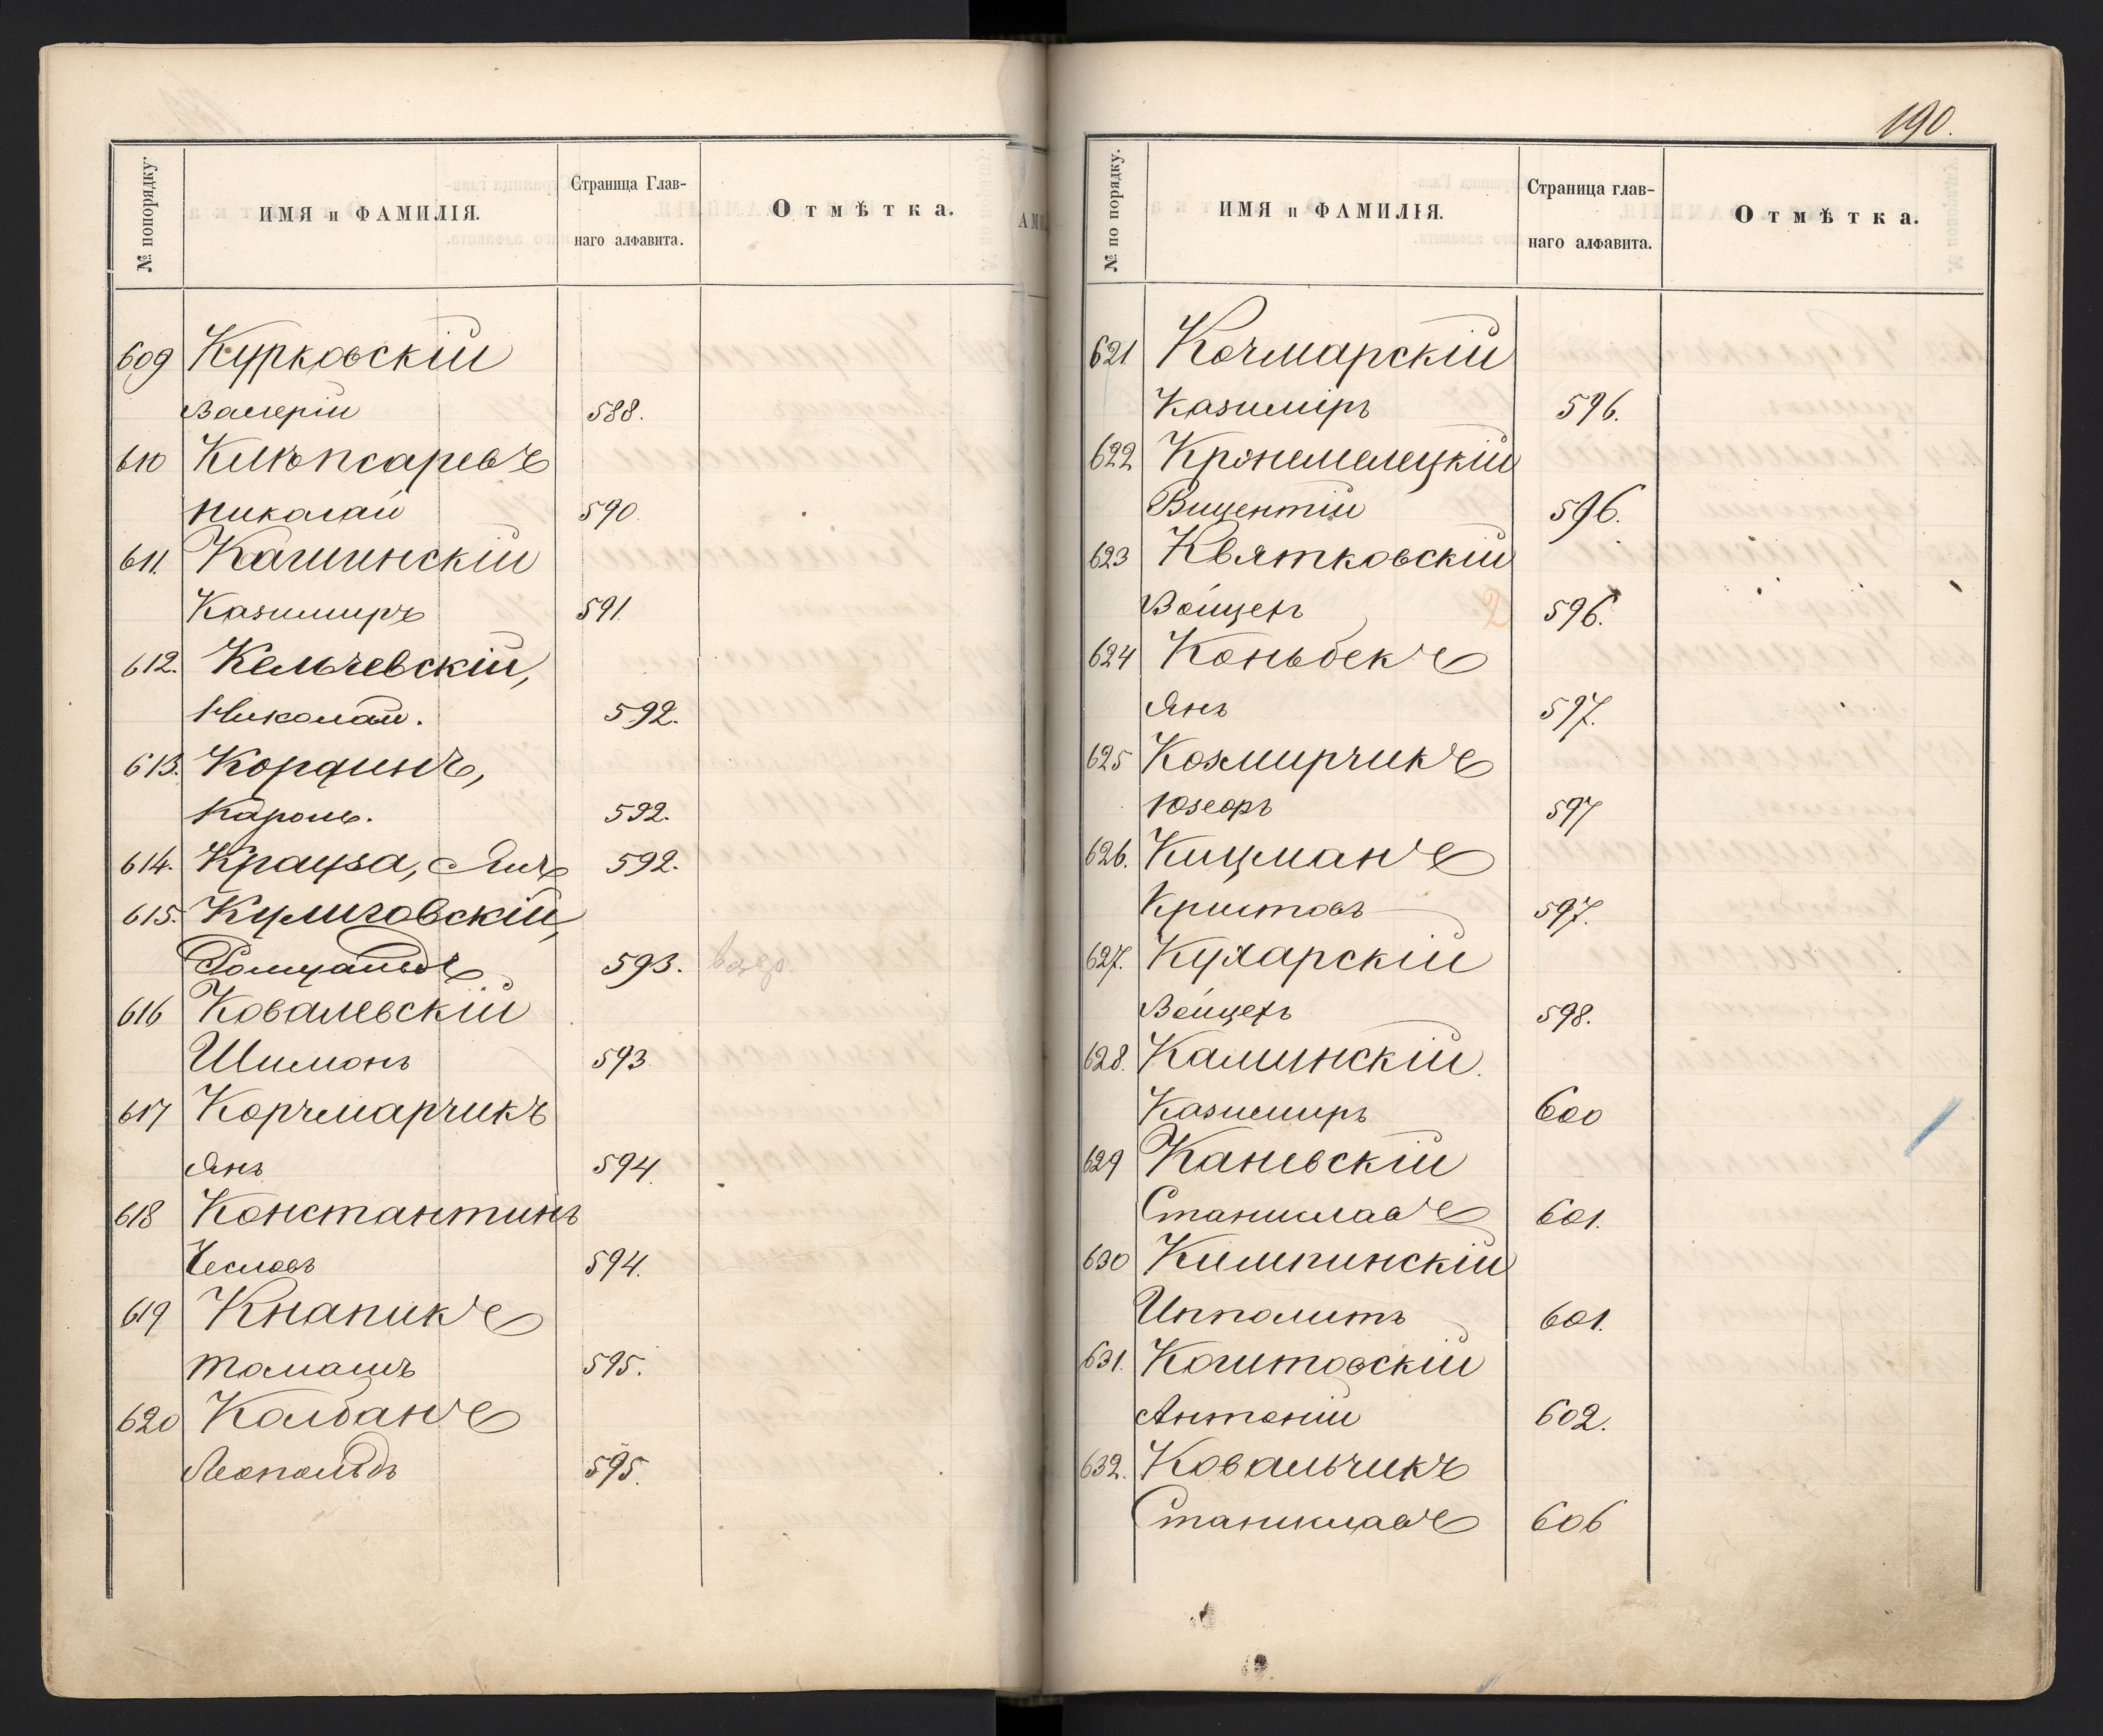 № попорядку.
ИМЯ и ФАМИЛІЯ.
Страница Глав-
наго алфавита.
Отмѣтка.
609 Курковскій
Валерій 588.
610 Клѣпсаревъ
Николай 590
611. Калинскій
Казимиръ 591.
612. Кельчевскій,
Николай. 592.
613. Кордынъ,
Кароль. 592.
614. Крауза, Янъ 592.
615. Кулиговскій,
Ромуальдъ 593.
616 Ковалевскій
Шимонъ 593
617 Корчмарчикъ
Янъ 594.
618 Константинъ
Чеславъ 594.
619 Кнапикъ
Томашъ 595.
620 Колбанъ
Леопольдъ 595.
190.
№ по порядку.
ИМЯ и ФАМИЛІЯ.
Страница глав-
наго алфавита.
Отмѣтка.
621 Кочмарскій
Казиміръ 596.
622 Кронемелецкій
Вицентій 596.
623 Квятковскій
Войцехъ 2 596.
624 Коньбекъ
Янъ 597.
625 Козмирчикъ
Юзефъ 597
626. Кицманъ
Криштовъ 597.
627. Кухарскій
Войцехъ 598.
628. Калинскій.
Казимиръ 600
629 Каневскій
Станиславъ 601.
630 Килпинскій
Ипполитъ 601.
631. Колитовскій
Антоній 602.
632. Ковальчикъ
Станиславъ 606